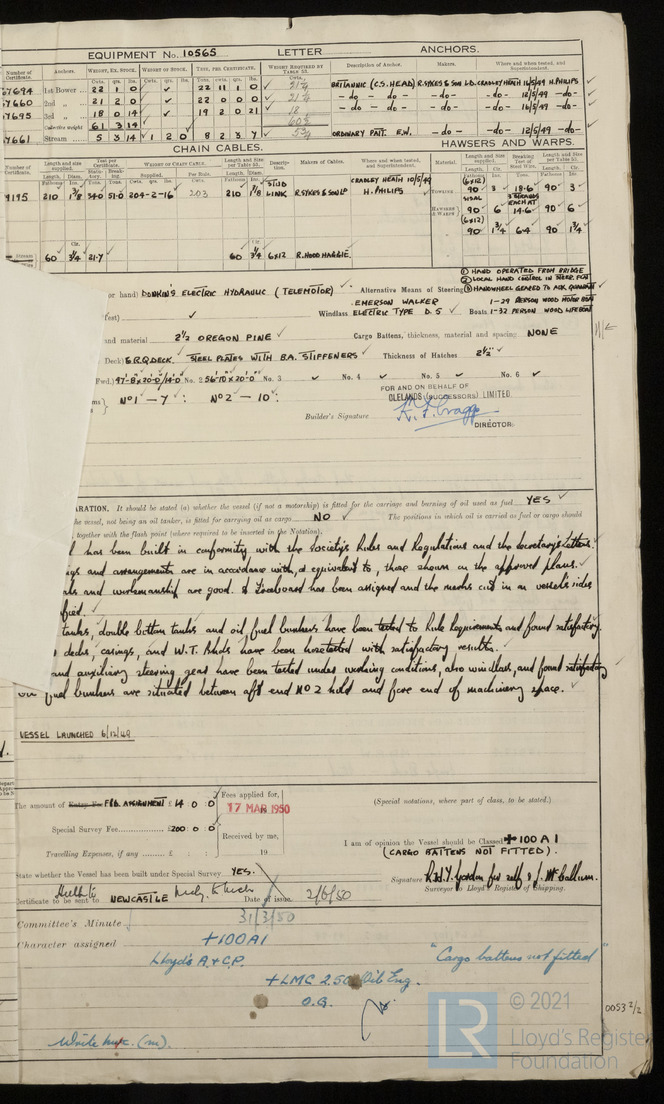 EQUIPMENT No. 10565 LETTER ANCHORS.
Number of Certificate. Anchors. WEIGHT, EX. STOCK. WEIGHT OF STOCK. TEST, PER CERTIFICATE. WEIGHT REQUIRED BY TABLE 53. Description of Anchor. Makers. Where and when tested, and Superintendent.
Cwts. qrs. lbs. Cwts. qrs. lbs. Tons. cwts. qrs. lbs. Cwts.
57694 1st Bower 22 1 0 ✓ 22 11 1 0 21¼ BRITANNIC (C.S. HEAD) R. SYKES & SON LD. CRADLEY HEATH 16/5/49 H. PHILIPS ✓
57660 2nd „ 21 2 0 ✓ 22 0 0 0 21¼ — do — — do — — do — 12/5/49 — do —
57695 3rd „ 18 0 14 ✓ 19 2 0 21 18 — do — — do — — do — 16/5/49 — do —
Collective weight 61 3 14 60½
57661 Stream 5 3 14 1 2 0 8 2 3 7 5¾ ORDINARY PATT. E.W. — do — — do — 12/5/49 — do —
CHAIN CABLES. HAWSERS AND WARPS.
Number of Certificate. Length and size supplied. Test per Certificate. WEIGHT OF CHAIN CABLE. Length and size per Table 53. Description. Makers of Cables. Where and when tested, and Superintendent. Material. Length and size supplied. Breaking Test of Steel Wire. Length and size per Table 53.
9195 210 1⅜ 34·0 51·0 204-2-16 203 210 1⅜ STUD LINK R. SYKES & SON LD CRADLEY HEATH 10/5/49 H. PHILIPS
TOWLINE (6x12) 90 3 18·6 90 3
HAWSERS & WARPS SISAL 90 6 14·6 90 6
(6x12) 90 1¾ 6·4 90 1¾
Stream 60 3¼ 21·7 60 3¼ 6x12 R. HOOD HAGGIE.
or hand) DONKIN'S ELECTRIC HYDRAULIC (TELEMOTOR) Alternative Means of Steering ① HAND OPERATED FROM BRIDGE
② LOCAL HAND CONTROL IN STEER. FLAT
③ HANDWHEEL GEARED TO AUX. QUADRANT
fest) ✓ Windlass EMERSON WALKER ELECTRIC TYPE D.5 ✓ Boats 1-29 PERSON WOOD MOTOR BOAT
1-32 PERSON WOOD LIFEBOAT
and material 2½ OREGON PINE ✓ Cargo Battens, thickness, material and spacing NONE
Deck) & R.Q.DECK. STEEL PLATES WITH B.A. STIFFENERS ✓ Thickness of Hatches 2½" ✓
Fwd.) 47'-8" x 20'-0"/14'-0" No. 2 56'-10" x 20'-0" No. 3 ✓ No. 4 ✓ No. 5 ✓ No. 6 ✓
ms) No 1 — 7 ✓ : No 2 — 10 :
FOR AND ON BEHALF OF
CLELANDS (SUCCESSORS) LIMITED
Builder's Signature
DIRECTOR.
ARATION. It should be stated (a) whether the vessel (if not a motorship) is fitted for the carriage and burning of oil used as fuel YES ✓
he vessel, not being an oil tanker, is fitted for carrying oil as cargo NO ✓ The positions in which oil is carried as fuel or cargo should
together with the flash point (where required to be inserted in the Notation).
l has been built in conformity with the Society's Rules and Regulations and the Secretary's letters.
ngs and arrangements are in accordance with, or equivalent to, those shown on the approved plans.
als and workmanship are good. A Freeboard has been assigned and the marks cut in on vessel's sides
fied. ✓
tanks, double bottom tanks and oil fuel bunkers have been tested to Rule Requirements and found satisfactory
decks, casings, and W.T. Bhds have been hosetested with satisfactory results.
and auxiliary steering gear have been tested under working conditions, also windlass, and found satisfactory
fuel bunkers are situated between aft end No 2 hold and fore end of machinery space. ✓
VESSEL LAUNCHED 6/12/49
The amount of Entry Fee FBD. ASSIGNMENT £ 14 0 : 0 Fees applied for,
17 MAR 1950
(Special notations, where part of class, to be stated.)
Special Survey Fee £200 : 0 : 0
Received by me,
Travelling Expenses, if any £ : : 19
I am of opinion the Vessel should be Classed ✠ 100 A1
(CARGO BATTENS NOT FITTED).
State whether the Vessel has been built under Special Survey YES.
Signature
Surveyor to Lloyd's Register of Shipping.
Certificate to be sent to NEWCASTLE Date of issue 2/6/50
Committee's Minute 31/3/50
Character assigned +100A1
Lloyd's A & C.P. "Cargo battens not fitted"
+LMC 2.50 Oil Eng.
O.G.
0053 2/2
© 2021
LR Lloyd's Register
Foundation